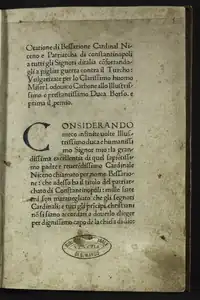 Oratione di Bessarione Cardinal Ni-
ceno e Patriarcha de constantinopoli
a tutti gli Signori ditalia cōfortando-
gli a pigliar guerra contra il Turcho:
Vulgarizate per lo Clarissimo huomo
Miser Lodouico Carbone allo Illustris-
simo e prestantissimo Duca Borso. e
prima il .pemio.
CONSIDERANDO
meco infinite uolte Illus-
trissimo duca e humanissi
mo Signor mio: la gran-
dissima excellentia di quel sapientissi-
mo padre e reuerēdissimo Cardinale
Niceno chiamato per nome Bessario-
ne: che adesso ha il titulo del patriar-
chato di Constantinopoli: mille uolte
Cardinali: e tutti gli pricipi christiani
per dignissimo capo de la chiesa de dio: